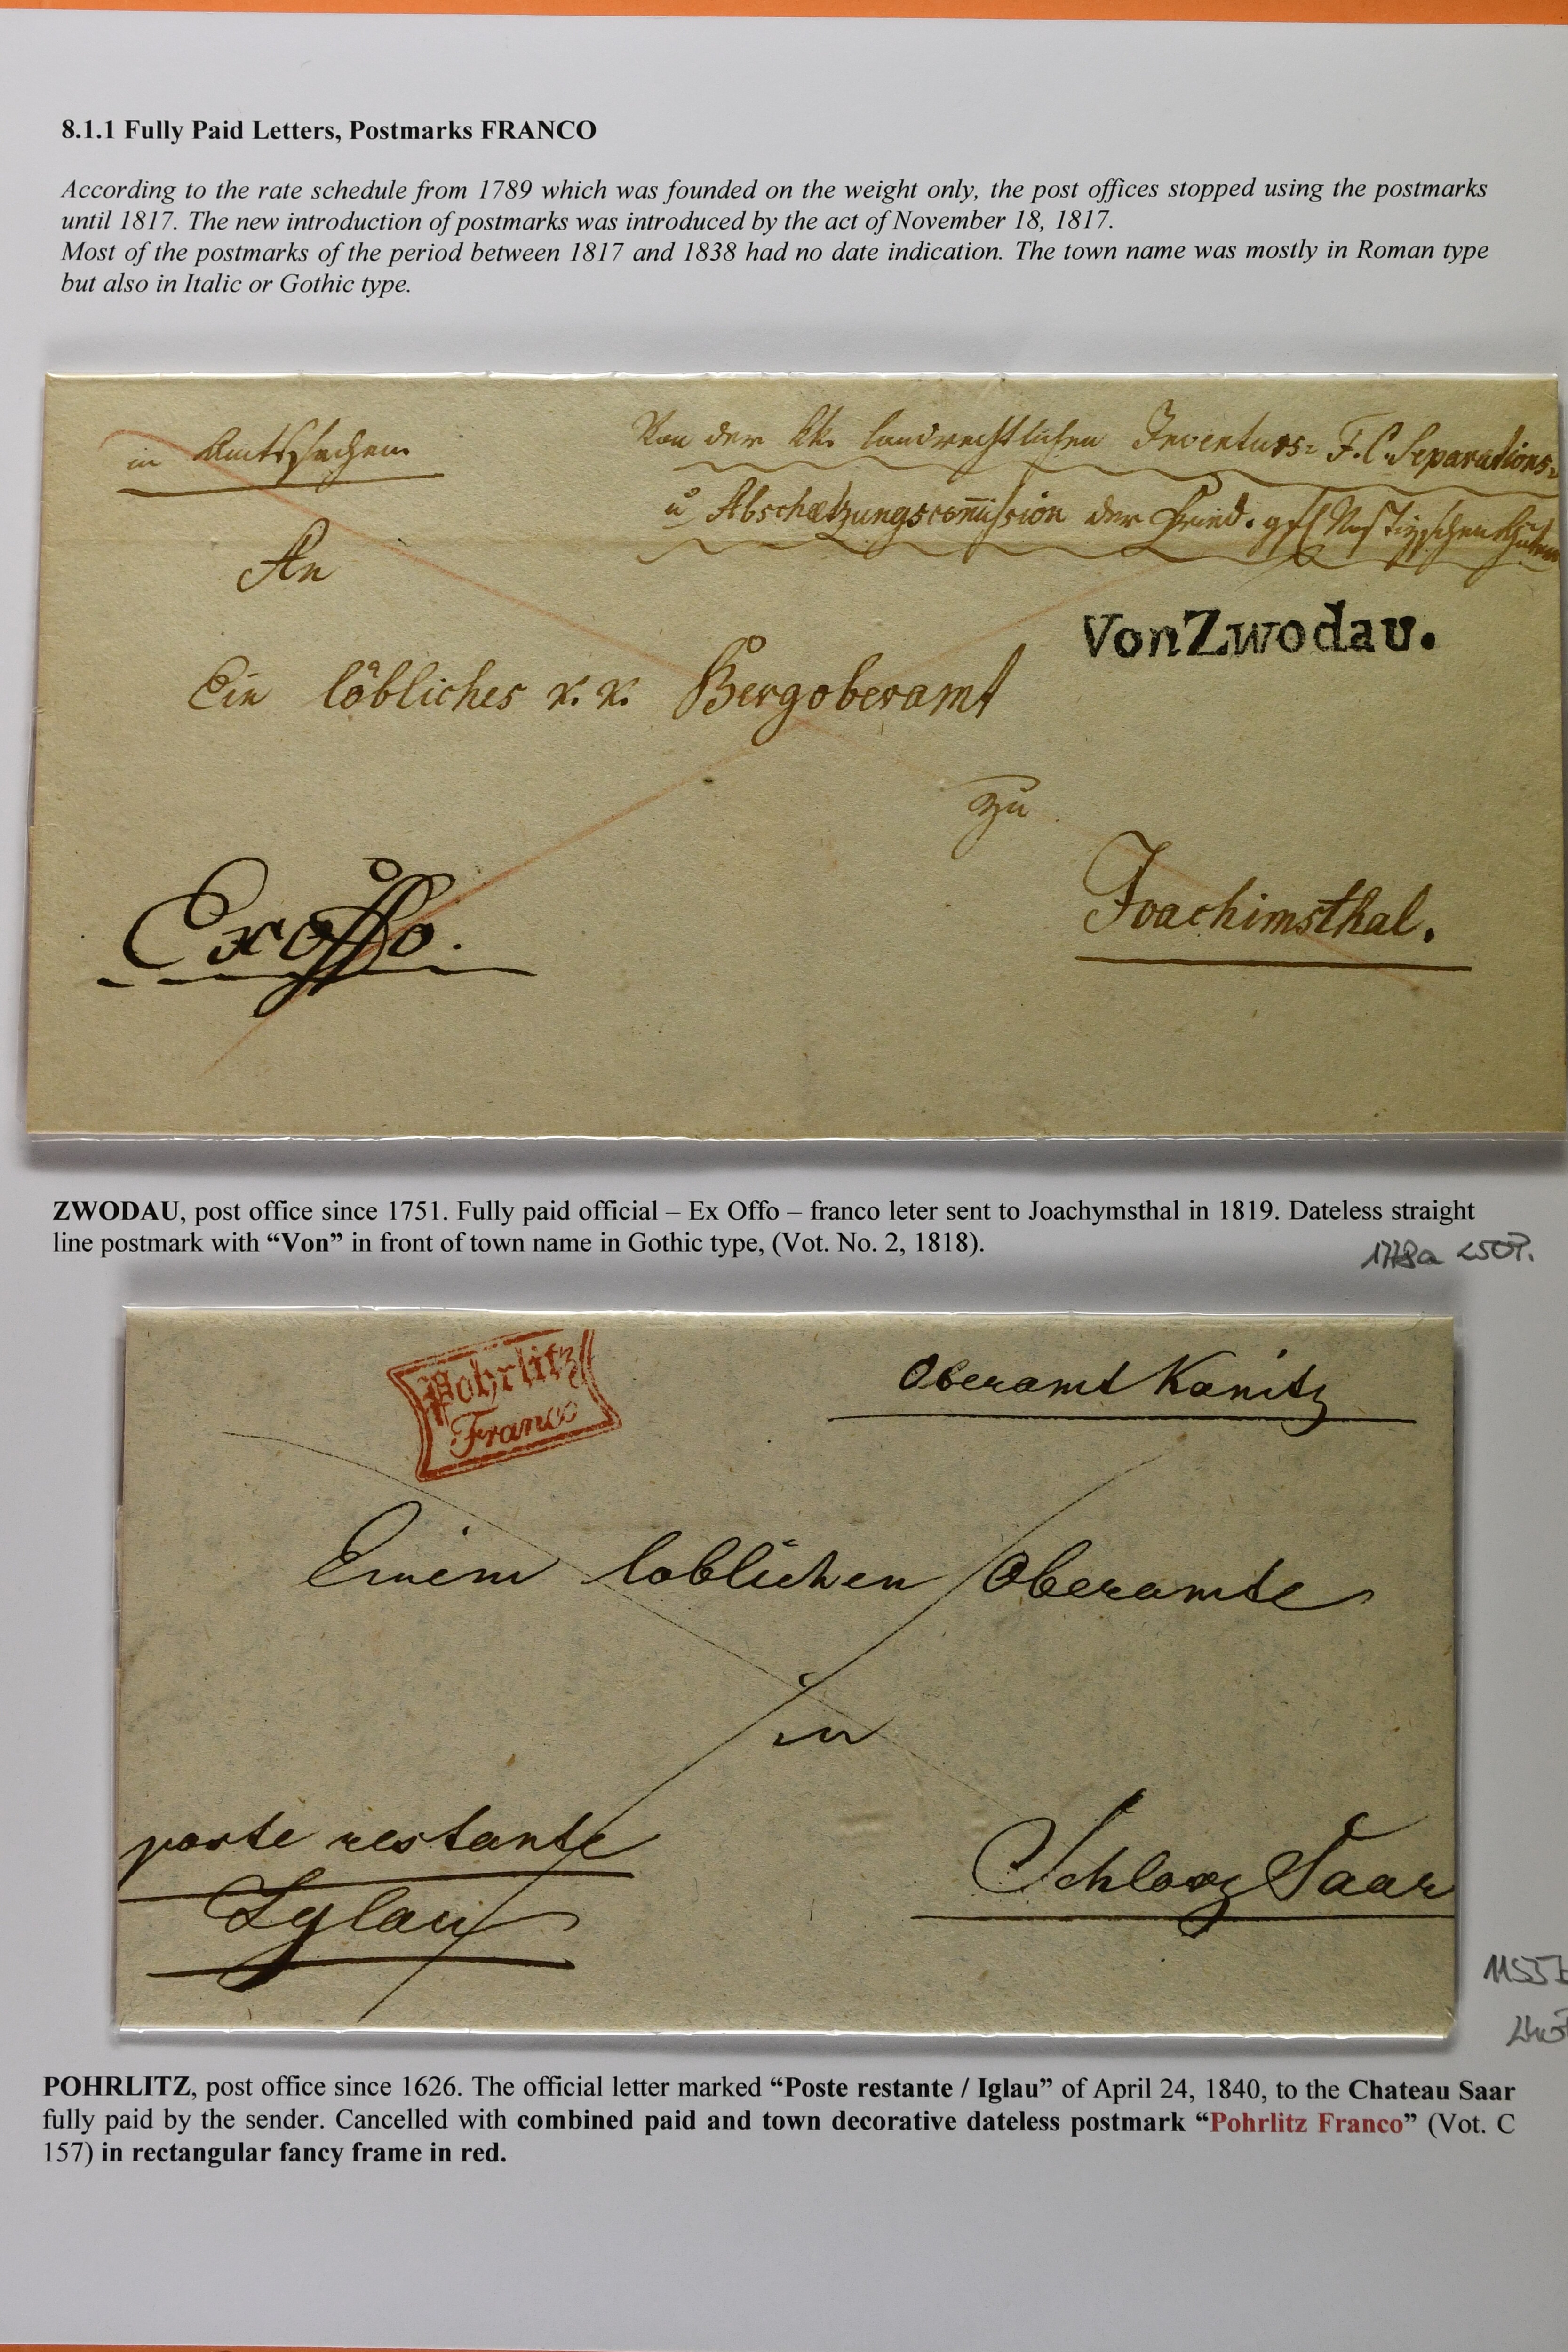 8.1.1 Fully Paid Letters, Postmarks FRANCO
According to the rate schedule from 1789 which was founded on the weight only, the post offices stopped using the postmarks
until 1817. The new introduction of postmarks was introduced by the act of November 18, 1817.
Most of the postmarks of the period between 1817 and 1838 had no date indication. The town name was mostly in Roman type
but also in Italic or Gothic type.
in Amtssachen
Von der kk. landrechtlichen Inventurs= F.C. Separations=
u Abschätzungscommission der Fried. gfl Nostizschen
An
Von Zwodau.
Ein löbliches k. k. Bergoberamt
zu
Exoffo.
Joachimsthal.
ZWODAU, post office since 1751. Fully paid official – Ex Offo – franco leter sent to Joachymsthal in 1819. Dateless straight
line postmark with “Von” in front of town name in Gothic type, (Vot. No. 2, 1818).
1778a 250P.
Pohrlitz
Franco
Oberamt Kanitz
Einem loblichen Oberamte
in
poste restante
Iglau
Schloss Saar
POHRLITZ, post office since 1626. The official letter marked “Poste restante / Iglau” of April 24, 1840, to the Chateau Saar
fully paid by the sender. Cancelled with combined paid and town decorative dateless postmark “Pohrlitz Franco” (Vot. C
157) in rectangular fancy frame in red.